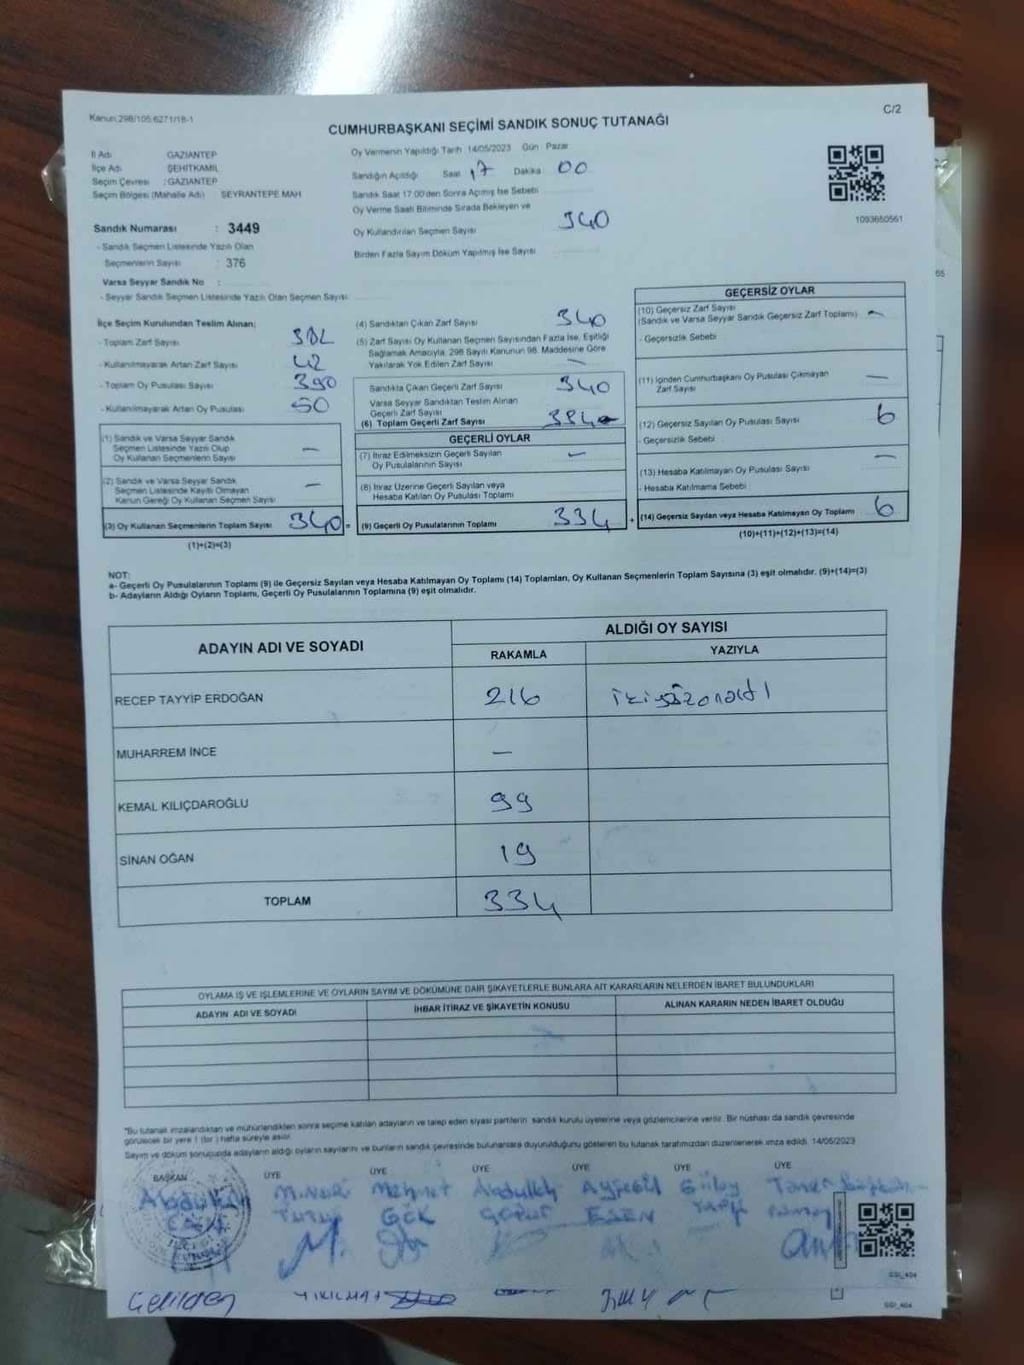 Kanun.298/105.6271/18-1
C/2
CUMHURBAŞKANI SEÇİMİ SANDIK SONUÇ TUTANAĞI
İl Adı GAZİANTEP
İlçe Adı ŞEHİTKAMİL
Seçim Çevresi : GAZİANTEP
Seçim Bölgesi (Mahalle Adı) SEYRANTEPE MAH
Sandık Numarası : 3449
- Sandık Seçmen Listesinde Yazılı Olan
Seçmenlerin Sayısı : 376
Varsa Seyyar Sandık No :
- Seyyar Sandık Seçmen Listesinde Yazılı Olan Seçmen Sayısı
Oy Vermenin Yapıldığı Tarih :14/05/2023 Gün : Pazar
Sandığın Açıldığı Saat 17 Dakika 00
Sandık Saat 17:00'den Sonra Açılmış İse Sebebi
Oy Verme Saati Bitiminde Sırada Bekleyen ve
Oy Kullandırılan Seçmen Sayısı 340
Birden Fazla Sayım Döküm Yapılmış İse Sayısı
1093650561
İlçe Seçim Kurulundan Teslim Alınan;
- Toplam Zarf Sayısı 382
- Kullanılmayarak Artan Zarf Sayısı 42
- Toplam Oy Pusulası Sayısı 390
- Kullanılmayarak Artan Oy Pusulası 50
(1) Sandık ve Varsa Seyyar Sandık
Seçmen Listesinde Yazılı Olup
Oy Kullanan Seçmenlerin Sayısı —
(2) Sandık ve Varsa Seyyar Sandık
Seçmen Listesinde Kayıtlı Olmayan
Kanun Gereği Oy Kullanan Seçmen Sayısı —
(3) Oy Kullanan Seçmenlerin Toplam Sayısı 340 =
(1)+(2)=(3)
(4) Sandıktan Çıkan Zarf Sayısı 340
(5) Zarf Sayısı Oy Kullanan Seçmen Sayısından Fazla İse, Eşitliği
Sağlamak Amacıyla, 298 Sayılı Kanunun 98. Maddesine Göre
Yakılarak Yok Edilen Zarf Sayısı —
Sandıkta Çıkan Geçerli Zarf Sayısı 340
Varsa Seyyar Sandıktan Teslim Alınan
Geçerli Zarf Sayısı
(6) Toplam Geçerli Zarf Sayısı
GEÇERLİ OYLAR
(7) İtiraz Edilmeksizin Geçerli Sayılan
Oy Pusulalarının Sayısı —
(8) İtiraz Üzerine Geçerli Sayılan veya
Hesaba Katılan Oy Pusulası Toplamı
(9) Geçerli Oy Pusulalarının Toplamı 334 +
GEÇERSİZ OYLAR
(10) Geçersiz Zarf Sayısı
(Sandık ve Varsa Seyyar Sandık Geçersiz Zarf Toplamı) —
- Geçersizlik Sebebi
(11) İçinden Cumhurbaşkanı Oy Pusulası Çıkmayan
Zarf Sayısı —
(12) Geçersiz Sayılan Oy Pusulası Sayısı 6
- Geçersizlik Sebebi
(13) Hesaba Katılmayan Oy Pusulası Sayısı —
- Hesaba Katılmama Sebebi
(14) Geçersiz Sayılan veya Hesaba Katılmayan Oy Toplamı 6
(10)+(11)+(12)+(13)=(14)
NOT:
a- Geçerli Oy Pusulalarının Toplamı (9) ile Geçersiz Sayılan veya Hesaba Katılmayan Oy Toplamı (14) Toplamları, Oy Kullanan Seçmenlerin Toplam Sayısına (3) eşit olmalıdır. (9)+(14)=(3)
b- Adayların Aldığı Oyların Toplamı, Geçerli Oy Pusulalarının Toplamına (9) eşit olmalıdır.
ADAYIN ADI VE SOYADI ALDIĞI OY SAYISI
RAKAMLA YAZIYLA
RECEP TAYYİP ERDOĞAN 216 ikiyüzonaltı
MUHARREM İNCE —
KEMAL KILIÇDAROĞLU 99
SİNAN OĞAN 19
TOPLAM 334
OYLAMA İŞ VE İŞLEMLERİNE VE OYLARIN SAYIM VE DÖKÜMÜNE DAİR ŞİKAYETLERLE BUNLARA AİT KARARLARIN NELERDEN İBARET BULUNDUKLARI
ADAYIN ADI VE SOYADI İHBAR İTİRAZ VE ŞİKAYETİN KONUSU ALINAN KARARIN NEDEN İBARET OLDUĞU
*Bu tutanak imzalandıktan ve mühürlendikten sonra seçime katılan adayların ve talep eden siyasi partilerin sandık kurulu üyelerine veya gözlemcilerine verilir. Bir nüshası da sandık çevresinde
görülecek bir yere 1 (bir ) hafta süreyle asılır.
Sayım ve döküm sonucunda adayların aldığı oyların sayılarını ve bunların sandık çevresinde bulunanlara duyurulduğunu gösteren bu tutanak tarafımızdan düzenlenerek imza edildi. 14/05/2023
BAŞKAN ÜYE ÜYE ÜYE ÜYE ÜYE ÜYE
Abdullah M.Nuri Mehmet Abdullah Ayşegül Taner
GÖK ESEN
GGİ_404
GGİ_404